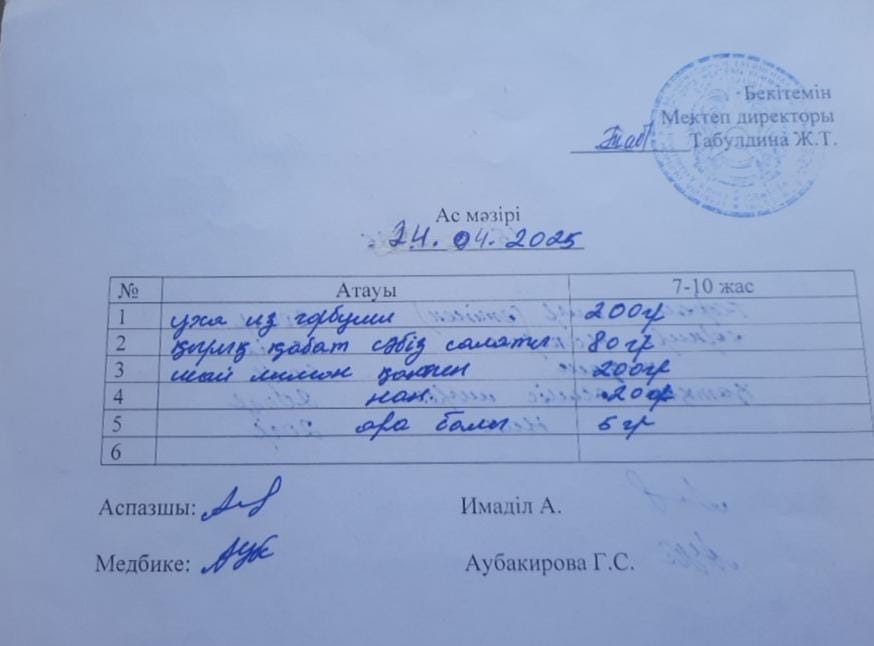 Бекітемін
Мектеп директоры
Табулдина Ж.Т.
Ас мәзірі
24. 04. 2025
№ Атауы 7-10 жас
1 уха из горбуши 200гр
2 қырық қабат сәбіз салаты 80гр
3 шай лимон қантпен 200гр
4 нан. 20гр
5 ара балы 5 гр
6
Аспазшы: Имаділ А.
Медбике: Аубакирова Г.С.